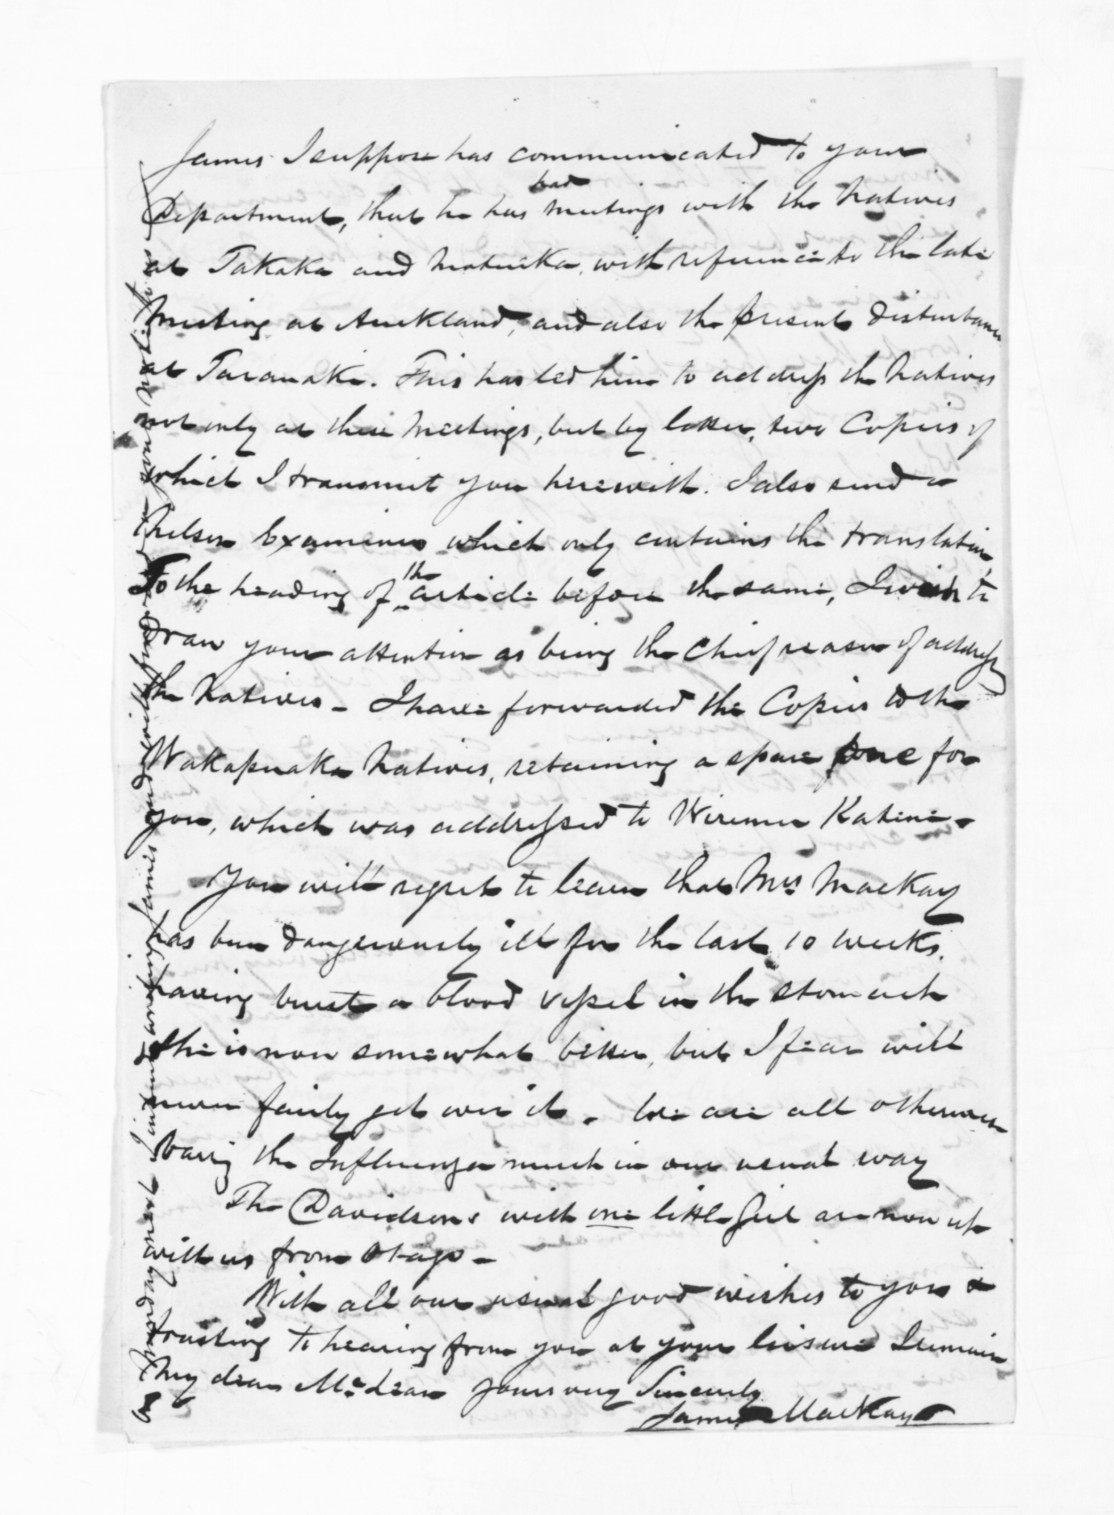 James I suppose has communicated to your
Department, that he has had meetings with the Natives
at Takaka and Motueka, with reference to the late
Meeting at Auckland, and also the present disturbances
at Taranaki. This has led him to address the Natives
not only at their Meetings, but by letter, two Copies of
which I transmit you herewith. I also send a
Nelson Examiner which only contains the translation,
To the heading of the article before the same, I wish to
draw your attention as being the chief reason of addressg
the Natives - I have forwarded the Copies to the
Wakapuaka Natives, retaining a spare one for
you, which was addressed to Wiremu Katene.
You will regret to learn that Mrs MacKay
has been dangerously ill for the last 10 weeks,
having burst a blood vessel in the stomach
She is now somewhat better, but I fear will
never fairly get over it. We are all otherwise
barrg the Influenza much in our usual way
The Davidsons with one little Girl are now up
with us from Otago -
With all our usual good wishes to you &
trusting to hearing from you at your leisure I remain
My dear McLean yours very Sincerely
James MacKay
On Monday next I intend driving James and will